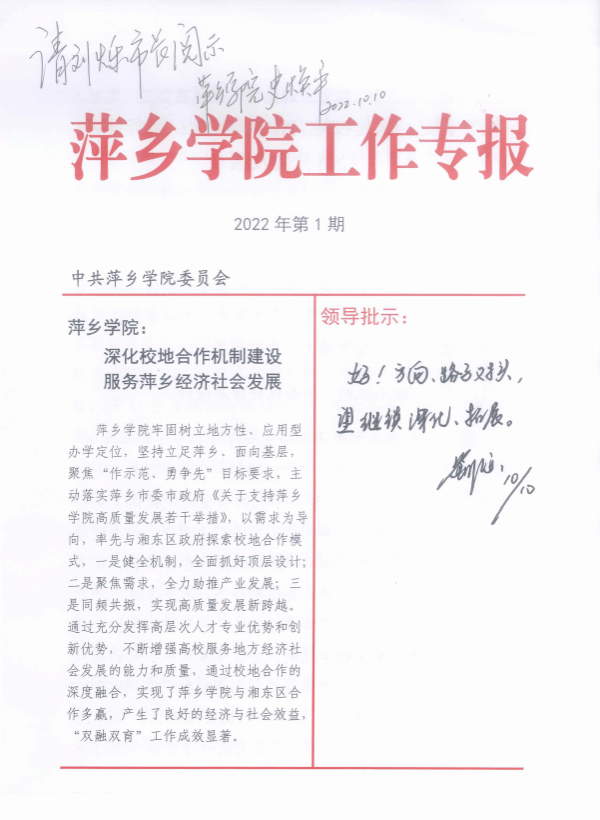 请刘烁市长阅示
萍乡学院史焕平
2022.10.10
萍乡学院工作专报
2022 年第 1 期
中共萍乡学院委员会
萍乡学院：
深化校地合作机制建设
服务萍乡经济社会发展
萍乡学院牢固树立地方性、应用型
办学定位，坚持立足萍乡、面向基层，
聚焦“作示范、勇争先”目标要求，主
动落实萍乡市委市政府《关于支持萍乡
学院高质量发展若干举措》，以需求为导
向，率先与湘东区政府探索校地合作模
式，一是健全机制，全面抓好顶层设计；
二是聚焦需求，全力助推产业发展；三
是同频共振，实现高质量发展新跨越。
通过充分发挥高层次人才专业优势和创
新优势，不断增强高校服务地方经济社
会发展的能力和质量，通过校地合作的
深度融合，实现了萍乡学院与湘东区合
作多赢，产生了良好的经济与社会效益，
“双融双育”工作成效显著。
领导批示：
好！方向、路子对头，
望继续深化、拓展。
10/10